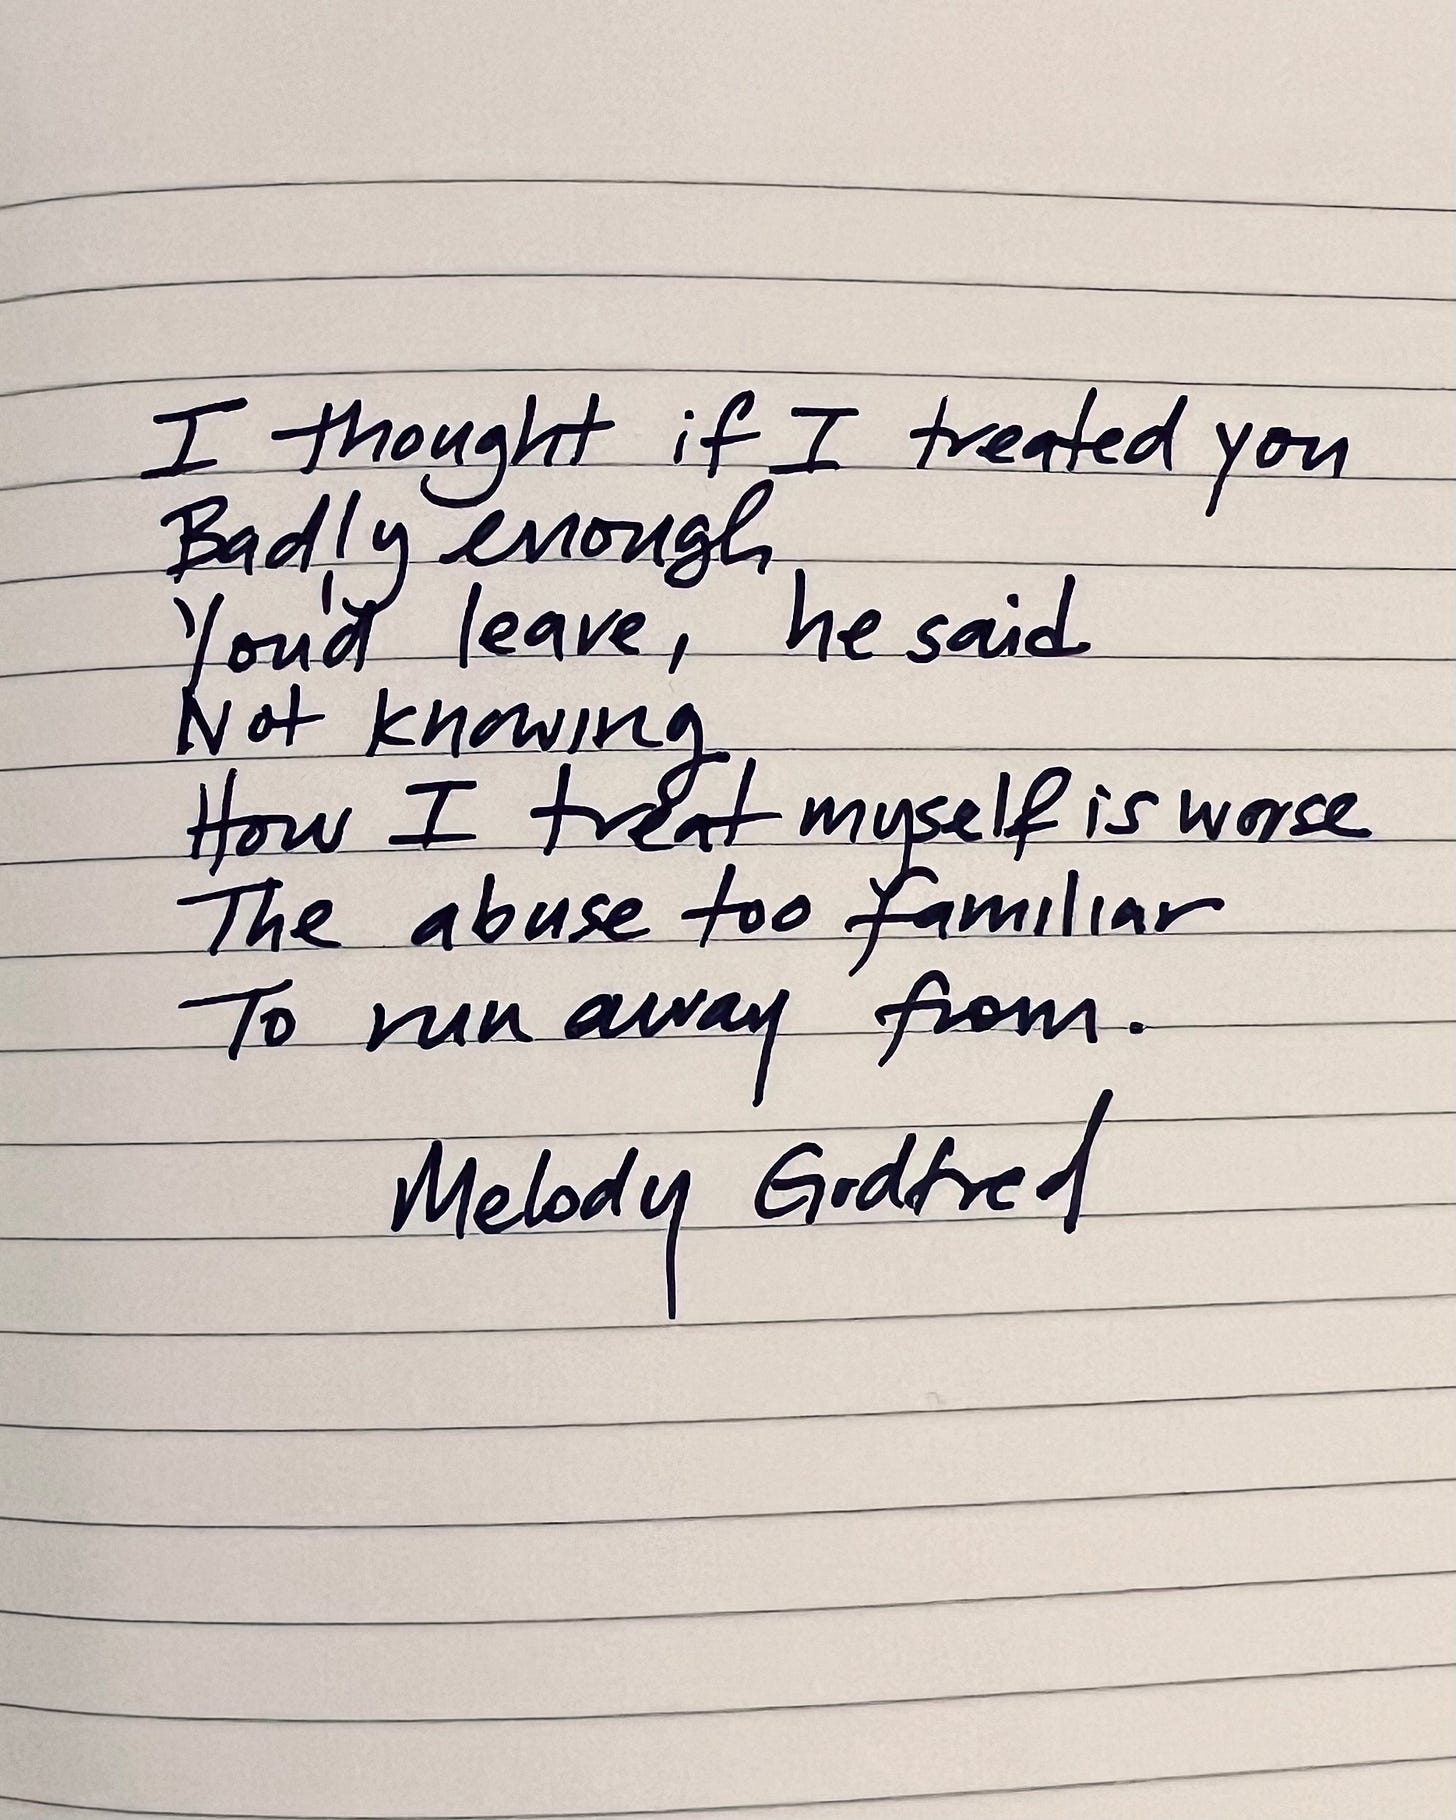 I thought if I treated you
Badly enough
You'd leave, he said
Not knowing
How I treat myself is worse
The abuse too familiar
To run away from.
Melody Godfred